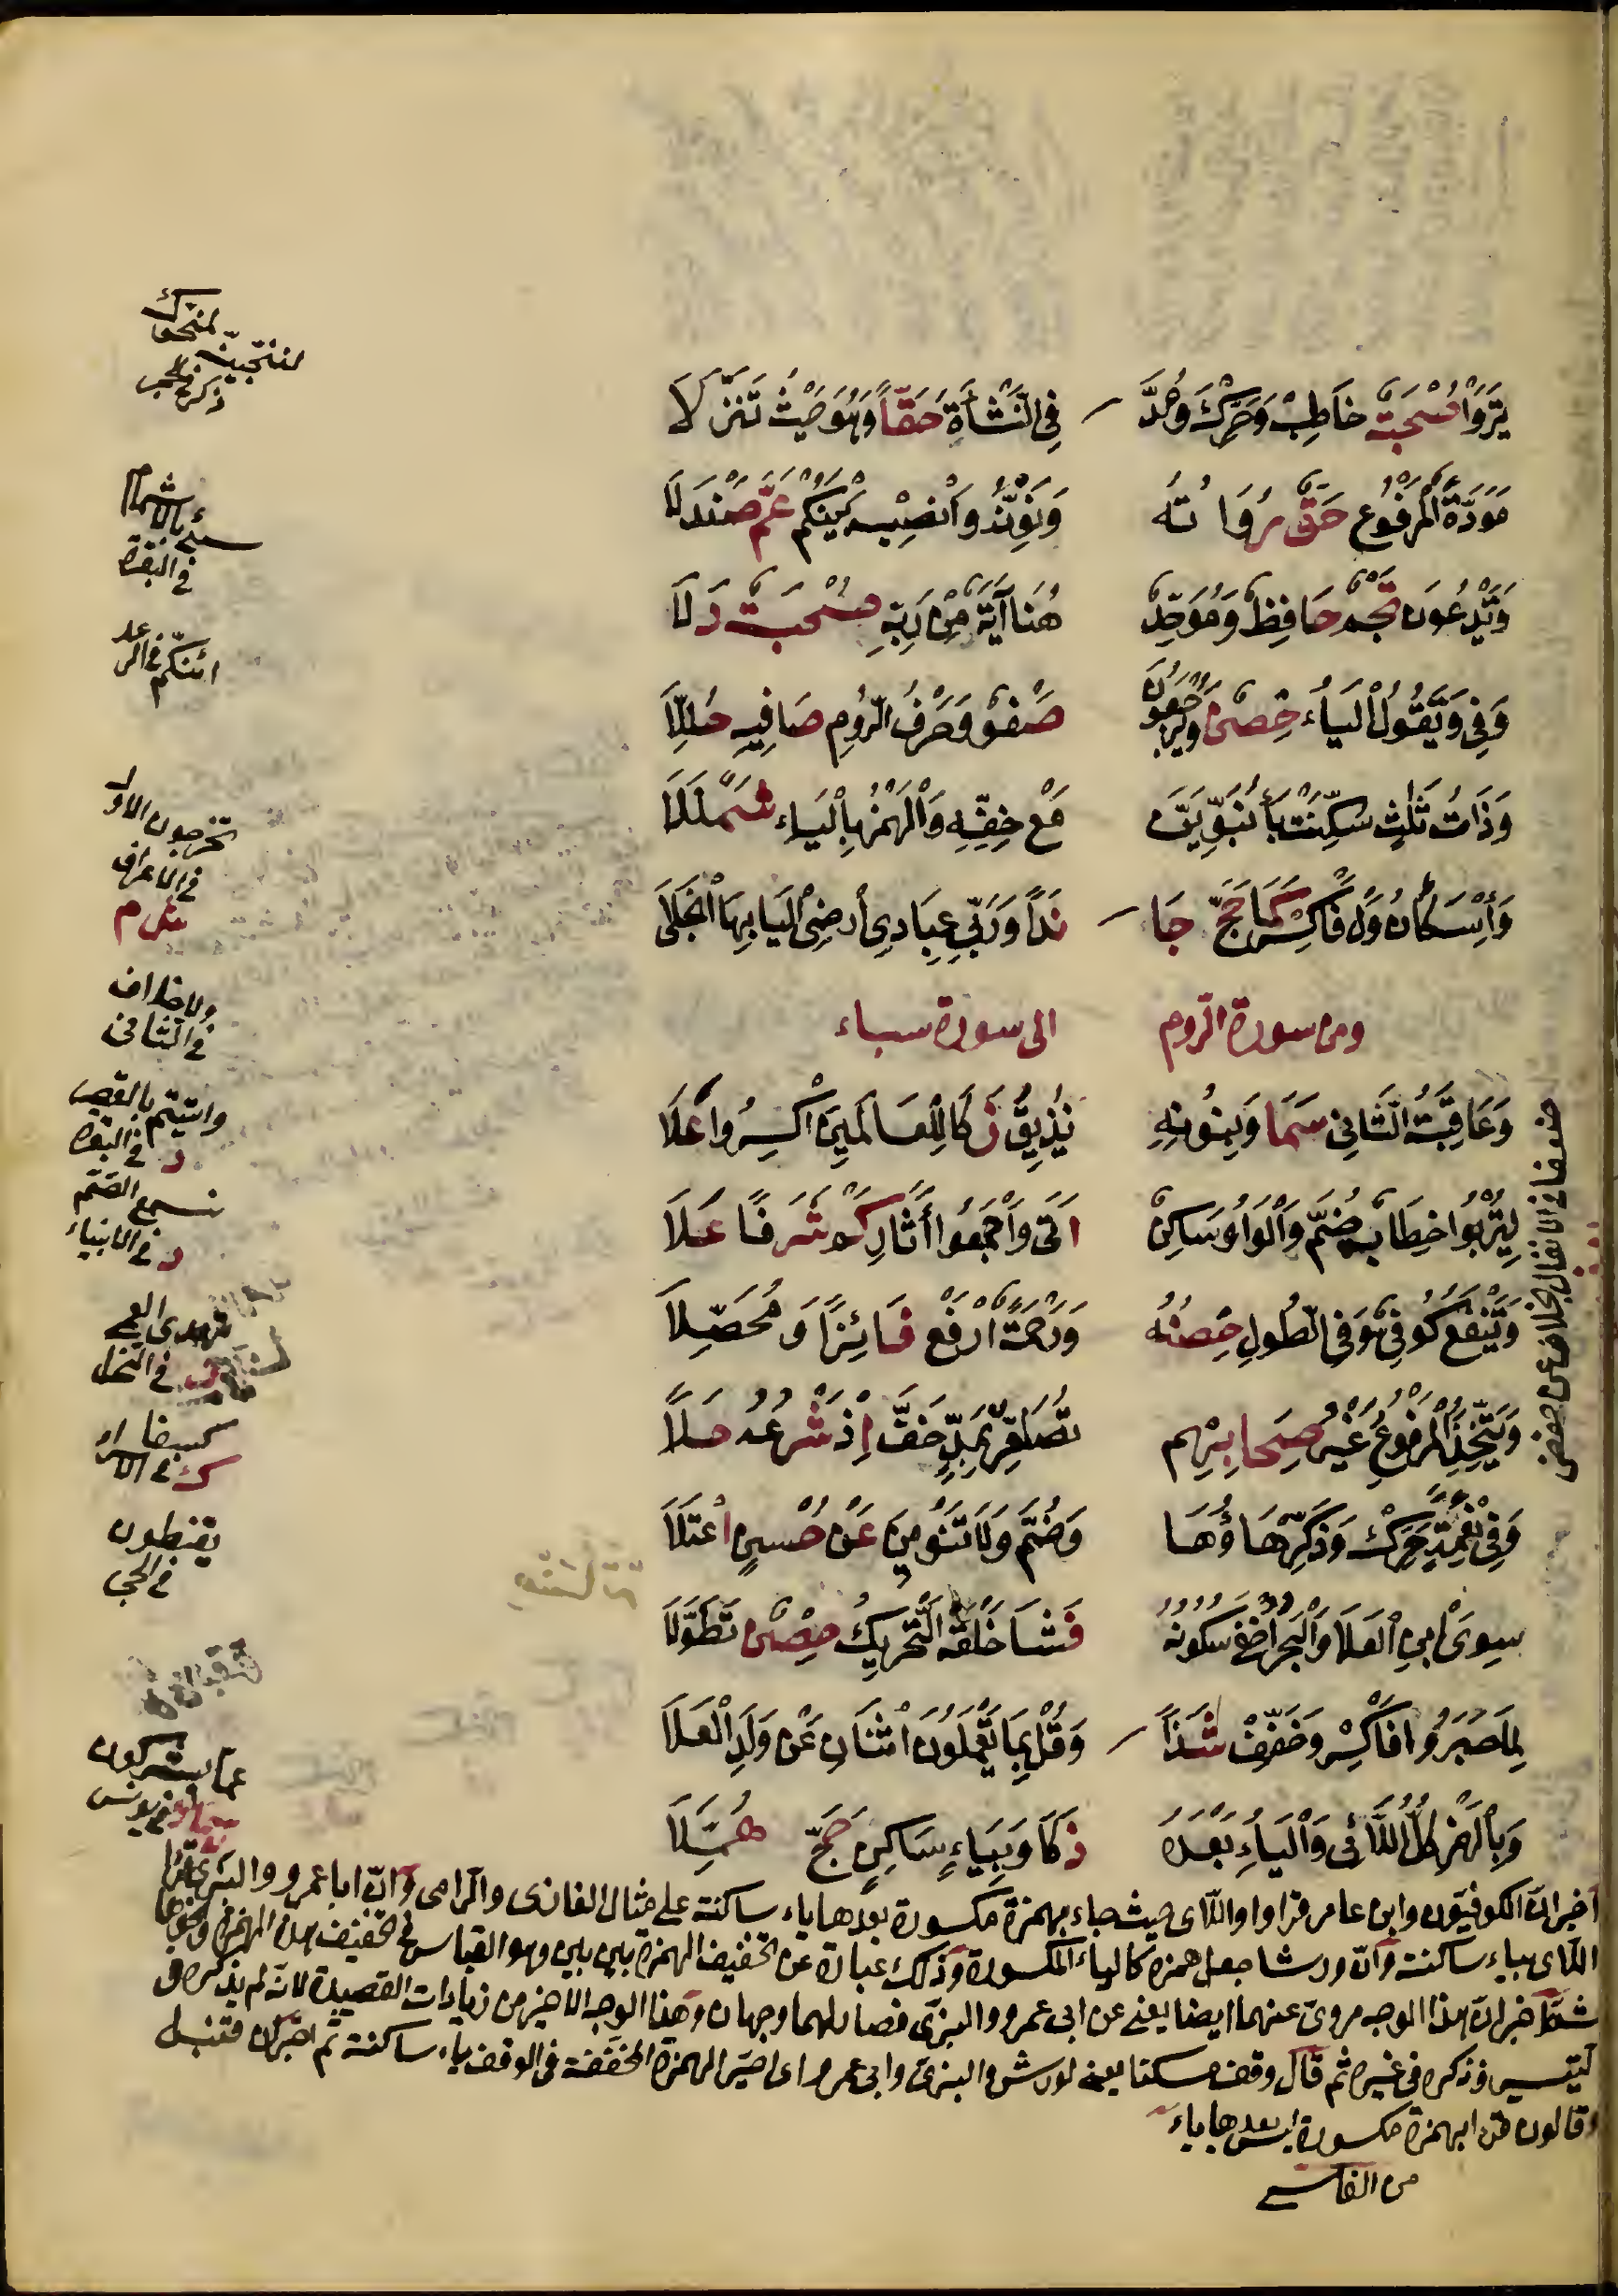 يَرَوْا صُحْبَةٌ خَاطِبْ وَحَرِّكْ وَمُدَّ فِي النَّشْأَةِ حَقًّا وَهُوَ حَيْثُ تَنَزَّلَا
مَوَدَّةُ الْمَرْفُوعُ حَقُّ رُوَاتُهُ وَنَوِّنْهُ وَانْصِبْ بَيْنَكُمْ عَمَّ صَنْدَلَا
وَيَدْعُونَ نَجْمٌ حَافِظٌ وَمُوَحِّدٌ هُنَا آيَةٌ مِنْ رَبِّهِ صُحْبَةٌ دَلَا
وَفِي وَيَقُولُ الْيَاءُ حِصْنٌ وَيُرْجَعُونَ صَفْوٌ وَحَرْفُ الرُّومِ صَافِيهِ حُلِّلَا
وَذَاتُ ثَلٰثٍ سُكِّنَتْ بَا نُبَوِّيَنَّ مَعْ خِفِّهِ وَالْهَمْزُ بِالْيَاءِ شَمْلَلَا
وَإِسْكَانُ وَلْ فَاكْسِرْ كَمَا حَجَّ جَا نَدًا وَرَبِّي عِبَادِي أَرْضِيَ الْيَا بِهَا انْجَلَى
ومن سورة الرّوم الى سورة سباء
وَعَاقِبَةُ الثَّانِي سَمَا وَبِنُونِهِ نُذِيقُ زَكَا لِلْعَالَمِينَ اكْسِرُوا عُلَا
لِيَرْبُوا خِطَابٌ ضُمَّ وَالْوَاوُ سَاكِنٌ اَتَى وَاجْمَعُوا أَثَارِ كَمْ شَرَفًا عَلَا
وَيَنْفَعُ كُوفِيٌّ وَفِي الطُّولِ حِصْنُهُ وَرَحْمَةً ارْفَعْ فَائِزًا وَمُحَصِّلَا
وَيَتَّخِذَ الْمَرْفُوعُ غَيْرُ صِحَابِهِمْ تُصَاعِرْ بِمَدٍّ خَفَّ إِذْ شَرْعُهُ حَلَا
وَفِي نِعْمَةً حَرِّكْ وَذُكِّرَ هَاؤُهَا وَضُمَّ وَلَا تَنْوِينَ عَنْ حُسْنٍ اعْتَلَا
سِوَى ابْنِ الْعَلَا وَالْبَحْرُ أُخْفِي سُكُونُهُ فَشَا خَلْقَهُ التَّحْرِيكُ حِصْنٌ تَطَوَّلَا
لِمَا صَبَرُوا فَاكْسِرْ وَخَفِّفْ شَذًا وَقُلْ بِمَا يَعْمَلُونَ اثْنَانِ عَنْ وَلَدِ الْعَلَا
وَبِالْهَمْزِ كُلُّ اللَّائِي وَالْيَاءِ بَعْدَهُ ذَكَا وَبِيَاءٍ سَاكِنٍ حَجَّ هُمَّلَا
أخبر انّ الكوفيّون وابن عامر قراوا واللّاى حيث جاء بهمزة مكسورة بعدها ياء ساكنة على مثال الغازى والرامى وانّ ابا عمرو والبزى قرا
اللاى بياء ساكنة وانّ ورشا جعل همزه كالياء المكسورة وذلك عبارة عن تخفيف الهمزة بين بين وهو القياس فى تخفيف هذه الهمزة
خبر انّ هذا الوجه مروىّ عنهما ايضا يعنى عن ابى عمرو والبزّى فصار لهما وجهان وهذا الوجه الاخير من زيادات القصيدة لانّه لم يذكره فى
التيسير وذكره فى غيره ثم قال وقف مسكنا يعنى لورش والبزى وابى عمرو اى اصيّر الهمزة المخففة فى الوقف ياء ساكنة ثم اخبر ان قنبل
وقالون قرا بهمزة مكسورة ليس بعدها ياء
من الفاسى
لننجينه
ذكر فى الحجر
سئ بالاشمام
فى البقرة
ائنكم فى الرعد
تخرجون الاول
فى الاعراف
ولا خلاف
فى الثانى
واتيتم بالقصر
د فى البقرة
تسمع الصّمّ
د فى الانبياء
تهدى العمى
فى النمل
كسفا
فى الاسراء
يقنطون
فى الحجر
عما يشركون
فى يونس
ضعفا فى الانفال بخلاف عن حفص